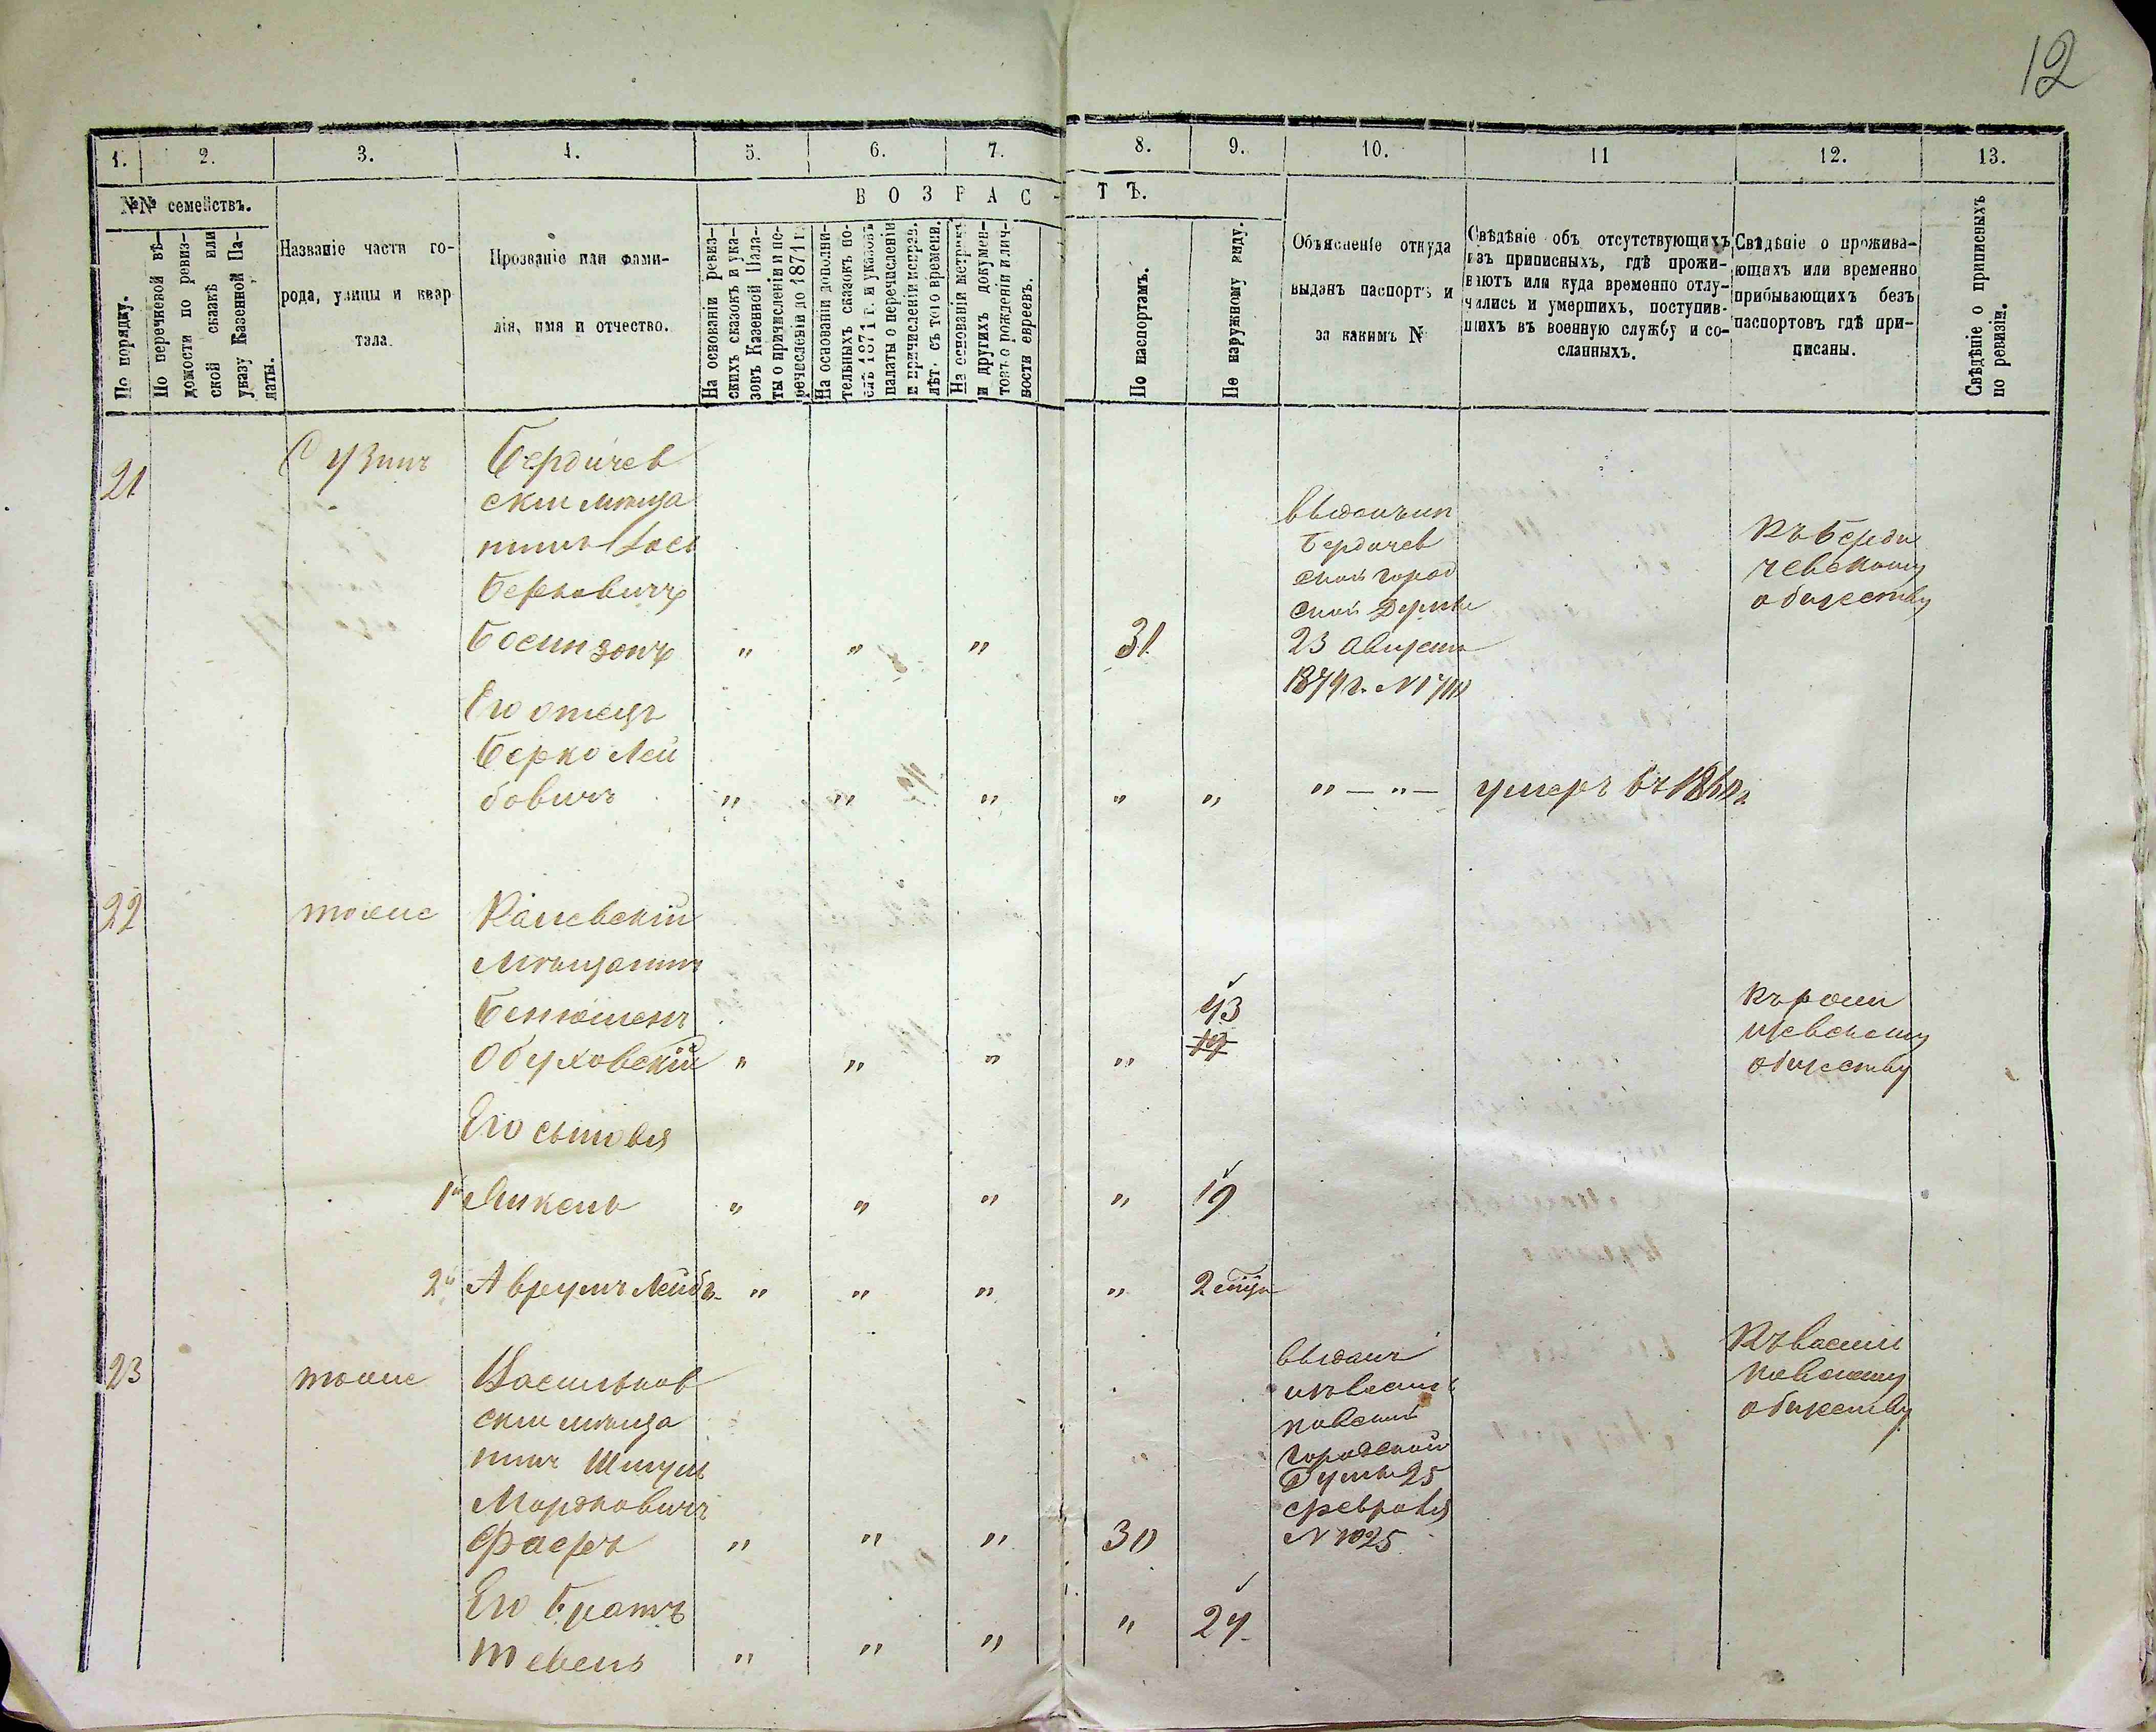 12
1. 2. 3. 4. 5. 6. 7. 8. 9. 10. 11 12. 13.
№№ семействъ.
По порядку.
По перечневой вѣ-
домости по ревиз-
ской сказкѣ или
указу Казенной Па-
латы.
Названіе части го-
рода, улицы и квар
тала.
Прозваніе или фами-
лія, имя и отчество.
ВОЗРАС-ТЪ.
На основаніи ревиз-
скихъ сказокъ и ука-
зовъ Казенной Пала-
ты о причисленіи и пе-
речисленіи до 1871 г.
На основаніи дополни-
тельныхъ сказокъ по-
слѣ 1871 г. и указовъ
палаты о перечисленіи
и причисленіи исправ.
лѣт. съ того времени.
На основаніи метрикъ
и другихъ докумен-
товъ о рожденіи и лич-
ности евреевъ.
По паспортамъ.
По наружному виду.
Объясненіе откуда
выданъ паспортъ и
за какимъ №
Свѣдѣніе объ отсутствующихъ
изъ приписныхъ, гдѣ прожи-
ваютъ или куда временно отлу-
чились и умершихъ, поступив-
шихъ въ военную службу и со-
сланныхъ.
Свѣдѣніе о прожива-
ющихъ или временно
прибывающихъ безъ
паспортовъ гдѣ при-
писаны.
Свѣдѣніе о приписныхъ
по ревизіи.
21
Бердичев
скій мѣща
нинъ Іось
Берковичъ
" " " 31
Выданъ изъ
Бердичев
ской город
ской Думы
23 Августа
1874 г. №
Къ Берди
чевскому
обществу
Его отецъ
Берко Лей
бовичъ " " " " " " — " — умеръ въ
22 тоже Каневскій
мѣщанинъ
43
Обуховскій " " " "
обществу
Его сыновья
1й Янкель " " " " 19
2й Аврумъ Лейбъ " " " " 2
23 тоже Васильков
скій мѣща
нинъ Шмуль
Мордковичъ
Фаеръ " " " 30
Выданъ
изъ Василь
ковской
Городской
Думы 25
февраля
№ 1025
Къ Василь
ковскому
обществу
Его братъ
Тевель " " " " 24